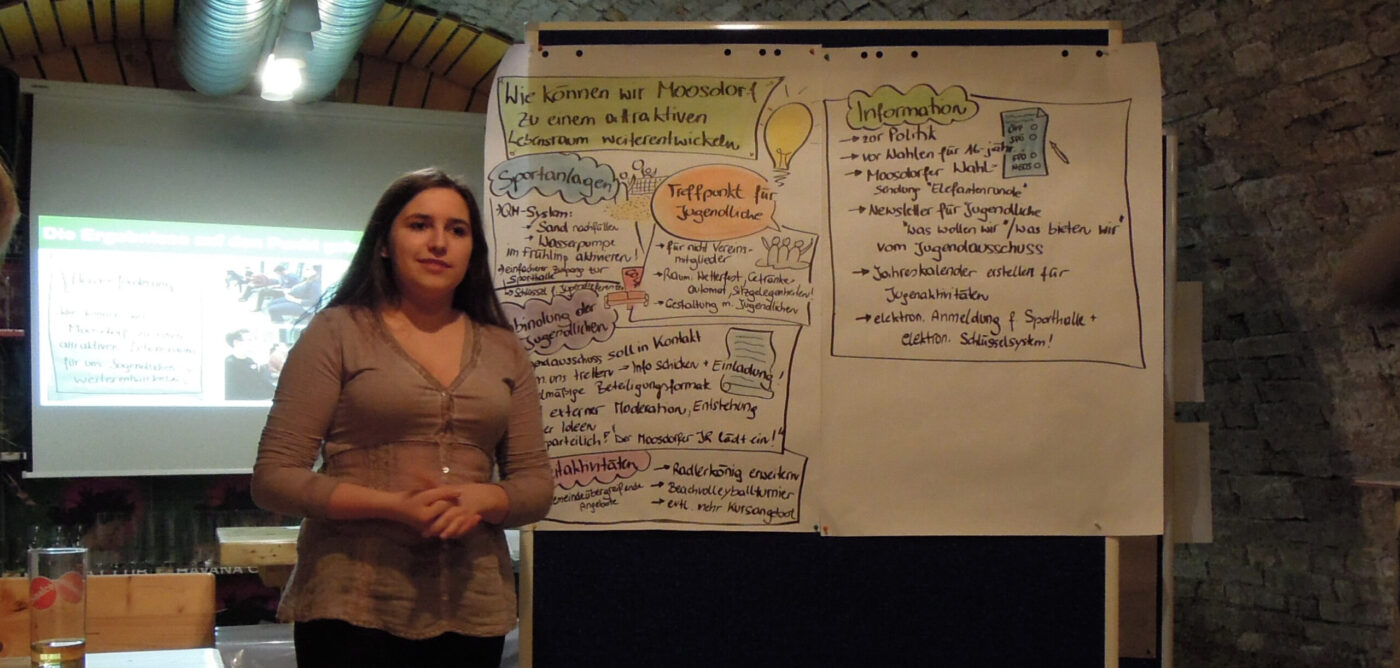 Wie können wir Moosdorf
zu einem attraktiven
Lebensraum weiterentwickeln
Sportanlagen
QM-System:
→ Sand nachfüllen
→ Wasserpumpe
im Frühling aktivieren!
→ einfacherer Zugang zur
Sporthalle
↳ Schlüssel f. Jugendreferenten
Treffpunkt für
Jugendliche
→ für nicht Vereins-
mitglieder
→ Raum: Wetterfest, Getränke-
automat, Sitzgelegenheiten!
→ Gestaltung m. Jugendlichen
bindung der
Jugendlichen
ausschuss soll in Kontakt
uns treten → Info schicken + Einladung!
mäßige Beteiligungsformate
externer Moderation, Entstehung
er Ideen
parteilich"! "Der Moosdorfer JR lädt ein!"
aktivitäten
meindeübergreifende
Angebote
→ Radlerkönig erweitern
→ Beachvolleyballturnier
→ evtl. mehr Kursangebot
Information
→ zur Politik
→ vor Wahlen für 16-jähr
→ Moosdorfer Wahl-
sendung "Elefantenrunde"
→ Newsletter für Jugendliche
"was wollen wir"/"was bieten wir"
vom Jugendausschuss
→ Jahreskalender erstellen für
Jugenaktivitäten
→ elektron. Anmeldung f. Sporthalle +
elektron. Schlüsselsystem!
ÖVP
SPÖ
FPÖ
NEOS
Die Ergebnisse auf den Punkt
Wie können wir
Moosdorf zu einem
attraktiven Lebensraum
für uns Jugendliche
weiterentwickeln?
HAVANA C